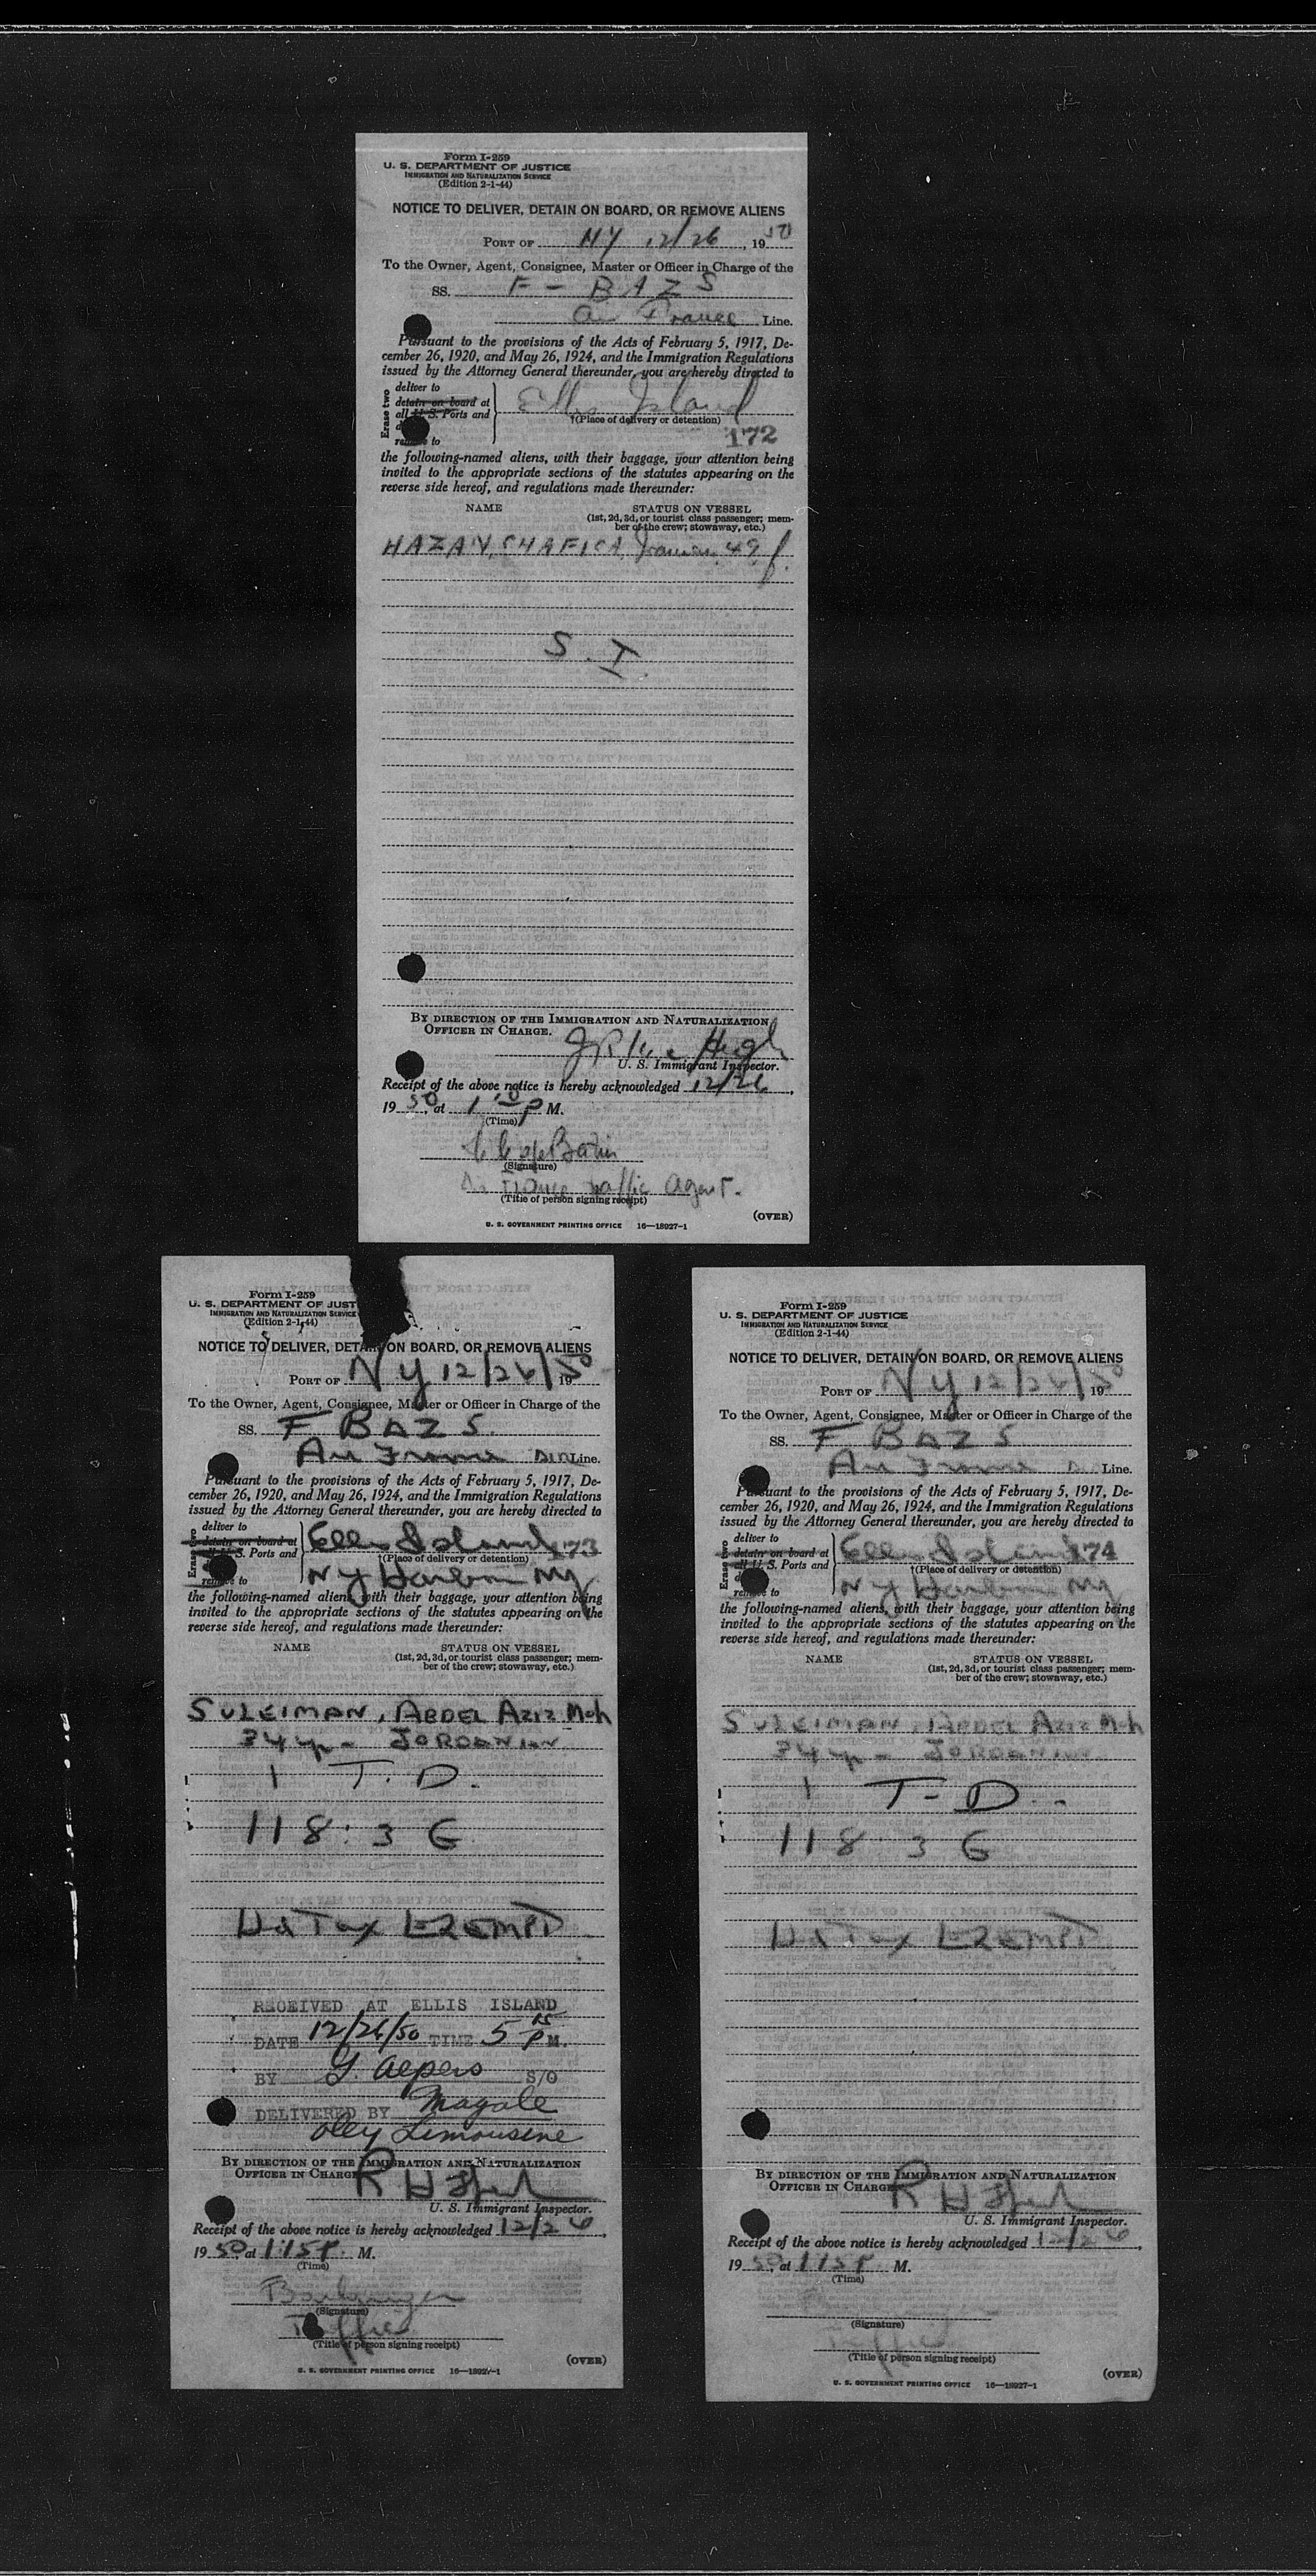 Form I-259
U. S. DEPARTMENT OF JUSTICE
IMMIGRATION AND NATURALIZATION SERVICE
(Edition 2-1-44)
NOTICE TO DELIVER, DETAIN ON BOARD, OR REMOVE ALIENS
PORT OF NY 12/26, 1950
To the Owner, Agent, Consignee, Master or Officer in Charge of the
SS. F-BAZS
Air France Line.
Pursuant to the provisions of the Acts of February 5, 1917, De-
cember 26, 1920, and May 26, 1924, and the Immigration Regulations
issued by the Attorney General thereunder, you are hereby directed to
Erase two
deliver to
detain on board at
all U. S. Ports and
remove to
Ellis Island
†(Place of delivery or detention)
172
the following-named aliens, with their baggage, your attention being
invited to the appropriate sections of the statutes appearing on the
reverse side hereof, and regulations made thereunder:
NAME STATUS ON VESSEL
(1st, 2d, 3d, or tourist class passenger; mem-
ber of the crew; stowaway, etc.)
HAZAN, CHAFICA, Iranian, 49, f.
S. I.
BY DIRECTION OF THE IMMIGRATION AND NATURALIZATION
OFFICER IN CHARGE.
U. S. Immigrant Inspector.
Receipt of the above notice is hereby acknowledged 12/26,
1950, at 1 10 P M.
(Time)
(Signature)
Air France traffic agent.
(Title of person signing receipt)
(OVER)
U. S. GOVERNMENT PRINTING OFFICE 16—18927-1
Form I-259
U. S. DEPARTMENT OF JUST
IMMIGRATION AND NATURALIZATION SERVICE
(Edition 2-1-44)
NOTICE TO DELIVER, DETAIN ON BOARD, OR REMOVE ALIENS
PORT OF NY 12/26/1950
To the Owner, Agent, Consignee, Master or Officer in Charge of the
SS. F BAZS.
Air France Line.
Pursuant to the provisions of the Acts of February 5, 1917, De-
cember 26, 1920, and May 26, 1924, and the Immigration Regulations
issued by the Attorney General thereunder, you are hereby directed to
Erase two
deliver to
detain on board at
all U. S. Ports and
remove to
Ellis Island 173
†(Place of delivery or detention)
NY Harbor NY
the following-named aliens, with their baggage, your attention being
invited to the appropriate sections of the statutes appearing on the
reverse side hereof, and regulations made thereunder:
NAME STATUS ON VESSEL
(1st, 2d, 3d, or tourist class passenger; mem-
ber of the crew; stowaway, etc.)
SULEIMAN, ABDEL AZIZ Moh
34 yr - JORDANIAN
1 T. D.
118:3 G
Hd Tax EXEMPT
RECEIVED AT ELLIS ISLAND
DATE 12/26/50 TIME 5 15 P M.
BY Y. Alpers S/O
DELIVERED BY Magale
Oley Limousine
BY DIRECTION OF THE IMMIGRATION AND NATURALIZATION
OFFICER IN CHARGE
U. S. Immigrant Inspector.
Receipt of the above notice is hereby acknowledged 12/26,
1950, at 1:15 P. M.
(Time)
(Signature)
Traffic
(Title of person signing receipt)
(OVER)
U. S. GOVERNMENT PRINTING OFFICE 16—18927-1
Form I-259
U. S. DEPARTMENT OF JUSTICE
IMMIGRATION AND NATURALIZATION SERVICE
(Edition 2-1-44)
NOTICE TO DELIVER, DETAIN ON BOARD, OR REMOVE ALIENS
PORT OF NY 12/26/1950
To the Owner, Agent, Consignee, Master or Officer in Charge of the
SS. F BAZS
Air France Line.
Pursuant to the provisions of the Acts of February 5, 1917, De-
cember 26, 1920, and May 26, 1924, and the Immigration Regulations
issued by the Attorney General thereunder, you are hereby directed to
Erase two
deliver to
detain on board at
all U. S. Ports and
remove to
Ellis Island 174
†(Place of delivery or detention)
NY Harbor NY
the following-named aliens, with their baggage, your attention being
invited to the appropriate sections of the statutes appearing on the
reverse side hereof, and regulations made thereunder:
NAME STATUS ON VESSEL
(1st, 2d, 3d, or tourist class passenger; mem-
ber of the crew; stowaway, etc.)
SULEIMAN, ABDEL AZIZ Moh
34 yr - JORDANIAN
1 T-D.
118 3 G
Hd Tax EXEMPT
BY DIRECTION OF THE IMMIGRATION AND NATURALIZATION
OFFICER IN CHARGE
U. S. Immigrant Inspector.
Receipt of the above notice is hereby acknowledged 12/26,
1950, at 1 15 P M.
(Time)
(Signature)
Traffic
(Title of person signing receipt)
(OVER)
U. S. GOVERNMENT PRINTING OFFICE 16—18927-1